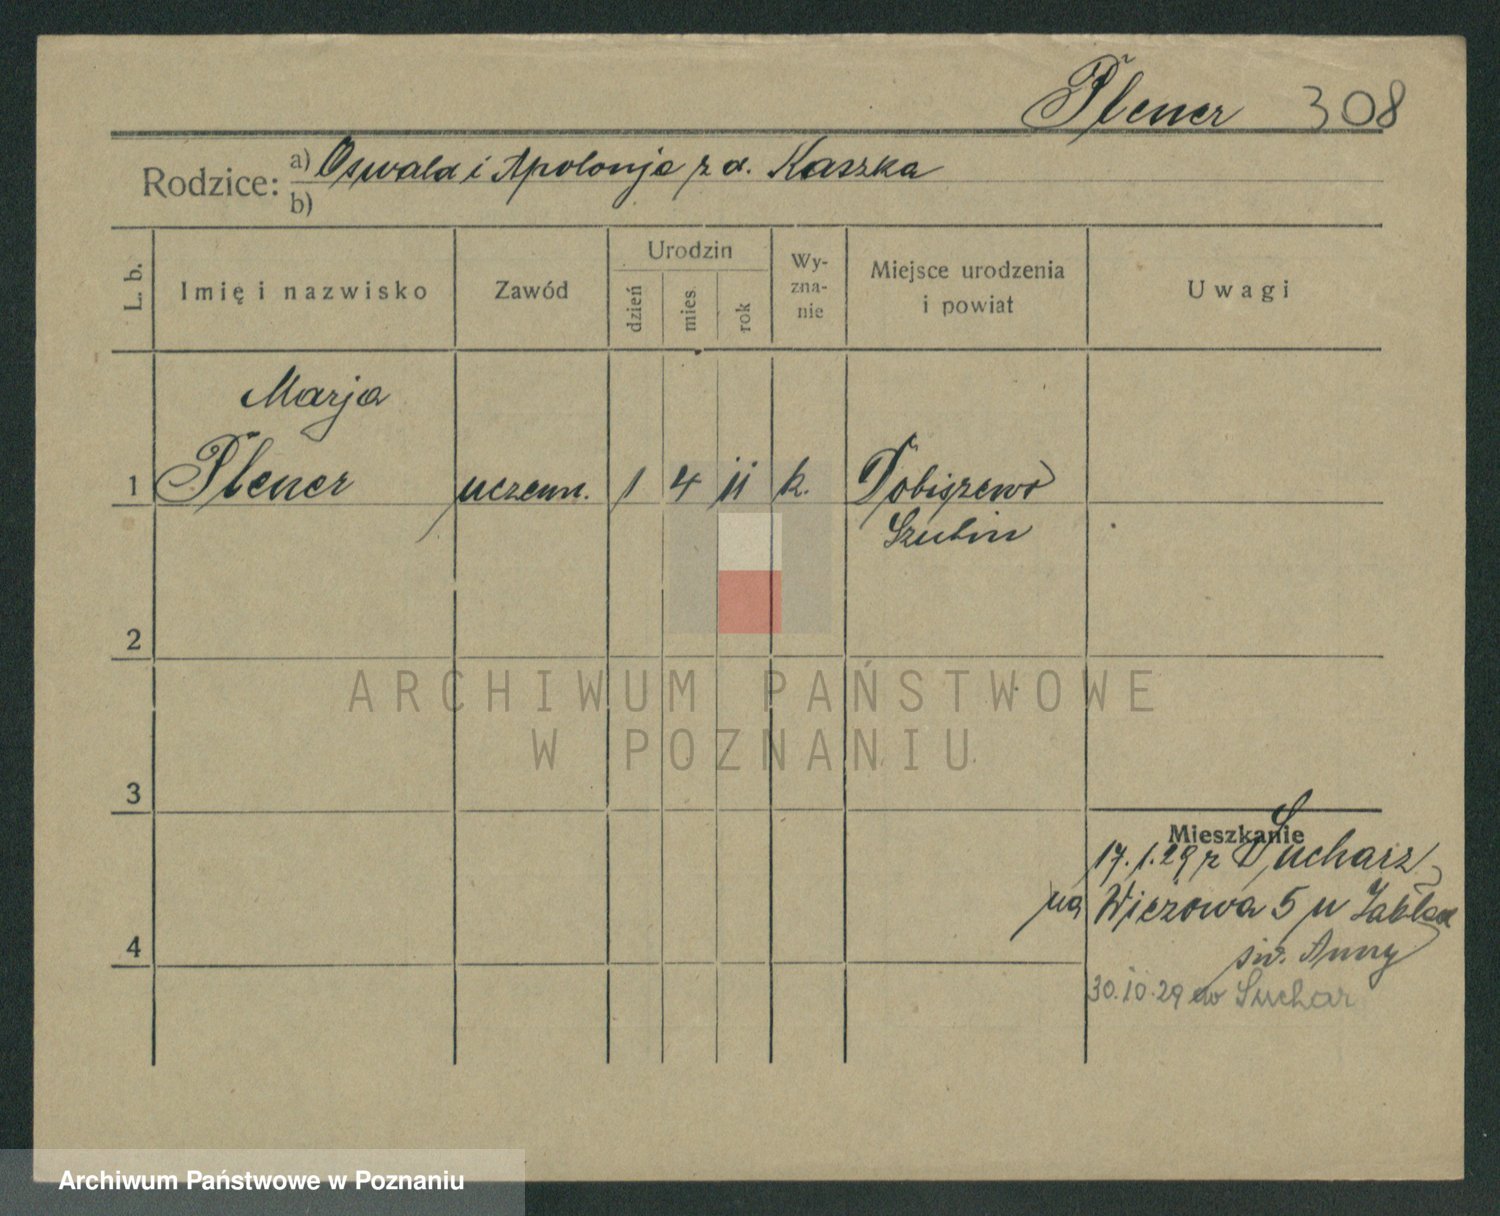 Plener 308
Rodzice: a) Oswald i Apolonja z d. Kaszka
b)
L. b.
Imię i nazwisko
Zawód
Urodzin
dzień
mies
rok
Wy-
zna-
nie
Miejsce urodzenia
i powiat
Uwagi
Marja
1 Plener uczenn. 1 4 11 k. Tobiszewo
Szubin
2
ARCHIWUM PAŃSTWOWE
W POZNANIU
3
Mieszkanie
17.1.29 z Sucharz
na Wieżowa 5 u Zakład
św. Anny
4
30.10.29 do Suchar
Archiwum Państwowe w Poznaniu